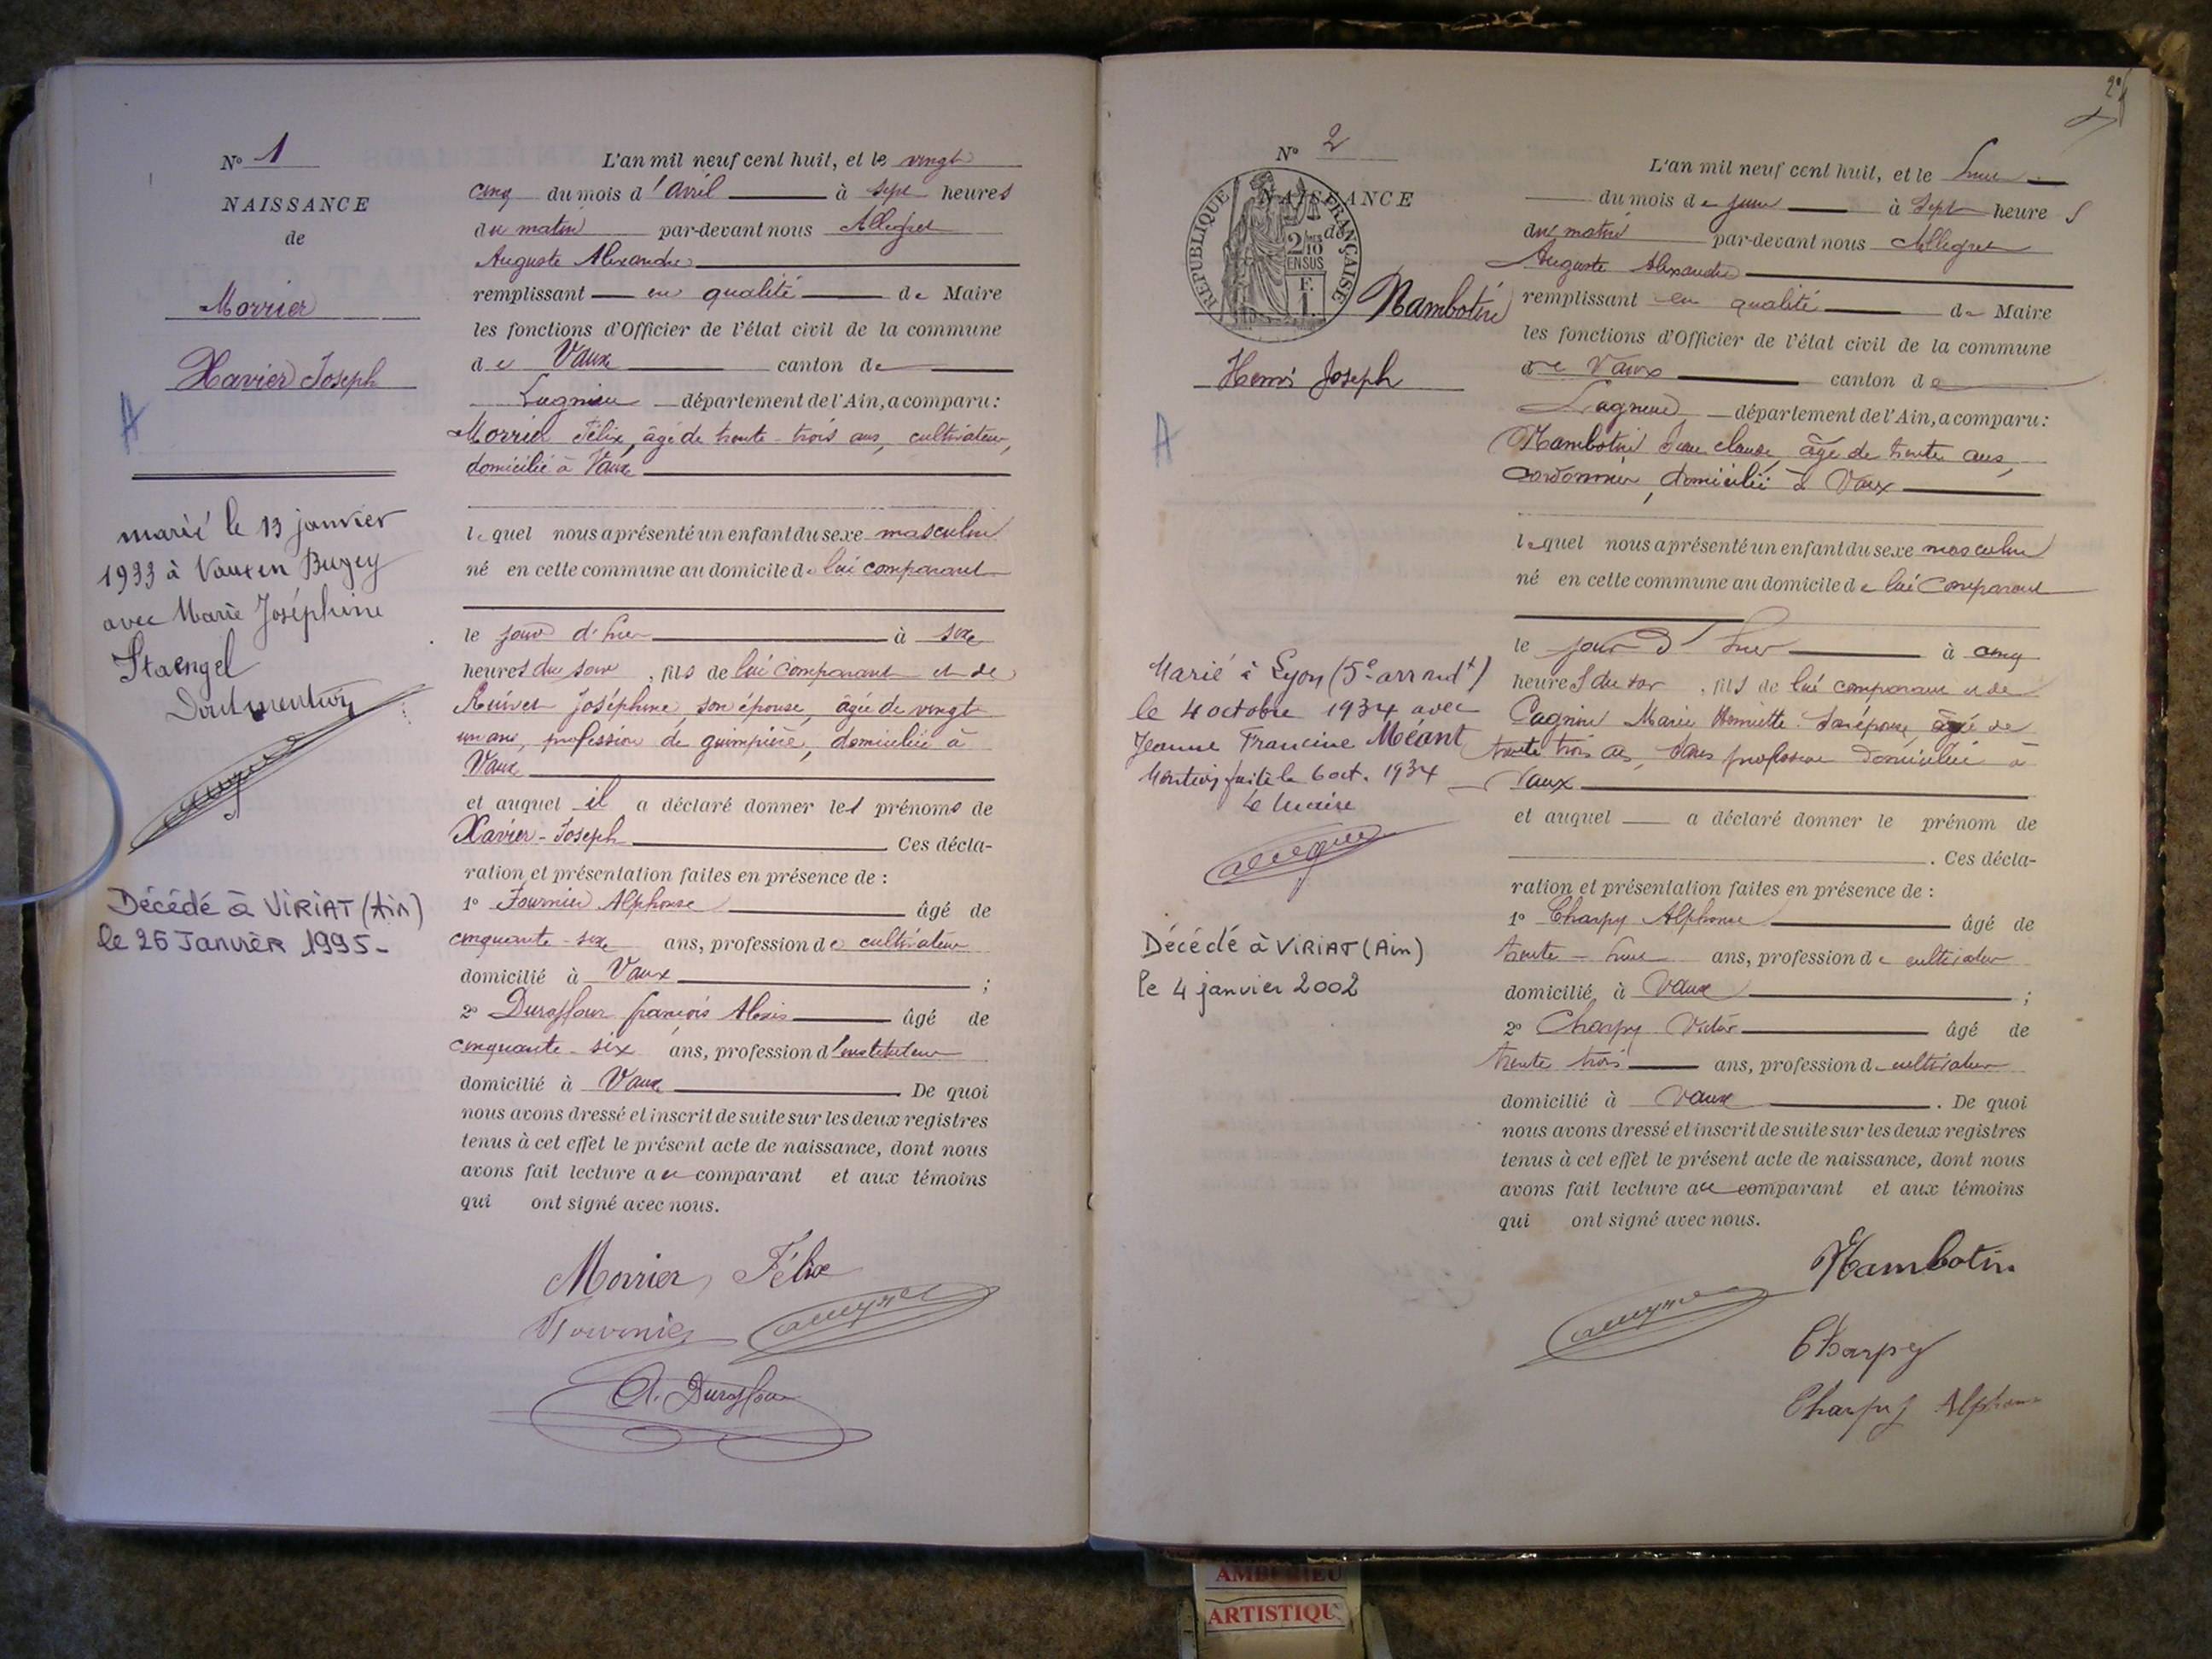 N° 1
NAISSANCE
de
Morrier
Xavier Joseph
A
marié le 13 janvier
1933 à Vaux en Bugey
avec Marie Joséphine
Staengel
Dont mention
Décédé à VIRIAT (Ain)
le 26 Janvier 1995-
L'an mil neuf cent huit, et le vingt
cinq du mois d'avril à sept heures
du matin par-devant nous Allegret
Auguste Alexandre
remplissant en qualité de Maire
les fonctions d'Officier de l'état civil de la commune
de Vaux canton de
Lagnieu département de l'Ain, a comparu:
Morrier Félix, âgé de trente-trois ans, cultivateur,
domicilié à Vaux
lequel nous a présenté un enfant du sexe masculin
né en cette commune au domicile de lui comparant
le jour d'hier à six
heures du soir, fils de lui comparant et de
Joséphine, son épouse, âgée de vingt
un ans, profession de guimpière, domiciliée à
Vaux
et auquel il a déclaré donner les prénoms de
Xavier-Joseph Ces décla-
ration et présentation faites en présence de :
1° Fournier Alphonse âgé de
cinquante-six ans, profession de cultivateur
domicilié à Vaux ;
2° Duraffour françois Alexis âgé de
cinquante-six ans, profession d'instituteur
domicilié à Vaux. De quoi
nous avons dressé et inscrit de suite sur les deux registres
tenus à cet effet le présent acte de naissance, dont nous
avons fait lecture au comparant et aux témoins
qui ont signé avec nous.
Morrier Félix
Fournier
A. Duraffour
2
N° 2
NAISSANCE
de
REPUBLIQUE FRANÇAISE
2/10 EN SUS
F. 1.
Rambotin
Henri Joseph
A
Marié à Lyon (5e arrondt)
le 4 octobre 1934 avec
Jeanne Francine Méant
Mention faite le 6 oct. 1934
Le Maire
Décédé à VIRIAT (Ain)
le 4 janvier 2002
L'an mil neuf cent huit, et le
du mois de juin à sept heures
du matin par-devant nous Allegret
Auguste Alexandre
remplissant en qualité de Maire
les fonctions d'Officier de l'état civil de la commune
de Vaux canton de
Lagnieu département de l'Ain, a comparu:
Rambotin Jean claude, âgé de trente ans,
cordonnier, domicilié à Vaux
lequel nous a présenté un enfant du sexe masculin
né en cette commune au domicile de lui comparant
le jour d'hier à cinq
heures du soir, fils de lui comparant et de
Marie Henriette son épouse, âgé de
trente trois ans, sans profession domiciliée à
Vaux
et auquel a déclaré donner le prénom de
. Ces décla-
ration et présentation faites en présence de :
1° Charpy Alphonse âgé de
trente- ans, profession de cultivateur
domicilié à Vaux ;
2° Charpy Victor âgé de
trente trois ans, profession de cultivateur
domicilié à Vaux. De quoi
nous avons dressé et inscrit de suite sur les deux registres
tenus à cet effet le présent acte de naissance, dont nous
avons fait lecture au comparant et aux témoins
qui ont signé avec nous.
Rambotin
Charpy
Charpy Alphonse
AMBERIEU
ARTISTIQU